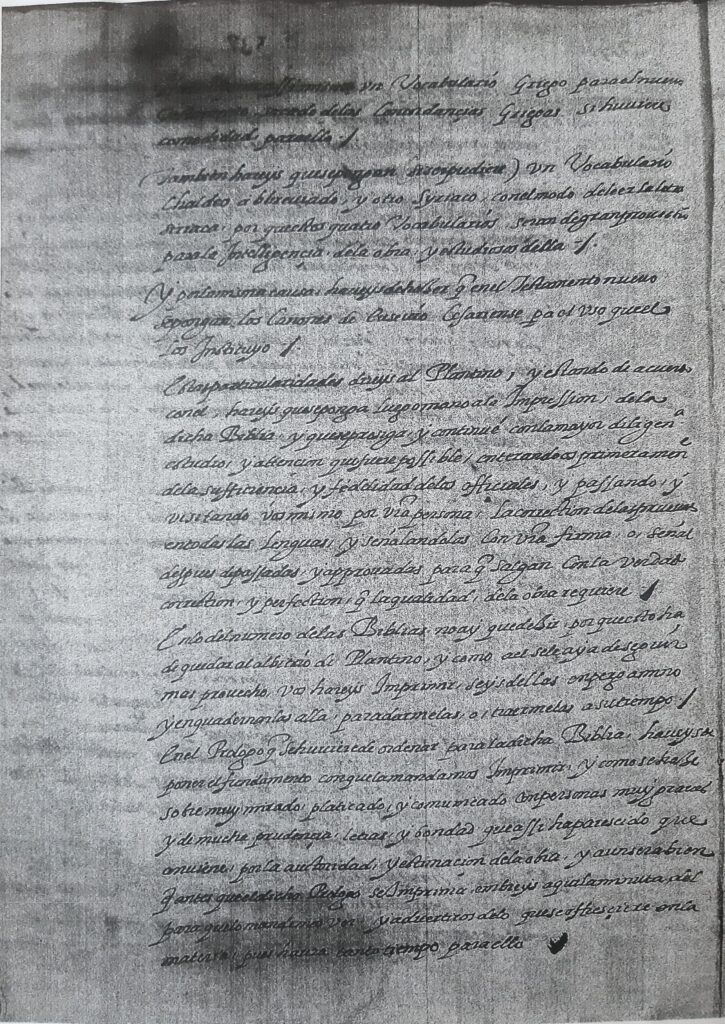 assimismo un Vocabulario Griego para el nuevo
sacado delas Concordancias Griegas si huviere
comodidad para ello /.
(Tambien hareys que se pongan ) un Vocabulario
Chaldeo abbreviado, y otro Syriaco, con el modo de leer la letra
siriaca, por que estos quatro Vocabularios, seran de gran provecho
para la Inteligencia, dela obra, y estudiosos della /.
Y por la misma causa, haveys de haber q̃ en el Testamento nuevo
se pongan, los Canones de Eusebio Cesariense pa el uso que el
los Instituyo /.
Estas particularidades direys al Plantino, y estando de acuerdo
con el, hareys que se ponga luego mano ala Impression, dela
dicha Biblia, y que se prosiga, y continue con la mayor diligena
estudio, y attencion que fuere possible, enterandoos primeramene
dela sufficiencia, y fidelidad delos officiales, y passando, y
visitando vos mismo por vra persona, la correction delas pruevas
en todas las Lenguas, y señalandolas con vra firma, o, señal
despues de passadas, y approvadas para q̃ salgan con la verdad
correction, y perfection, q̃ la qualidad, dela obra requiere /
En lo del numero de las Biblias no ay que dezir, por que esto ha
de quedar al albitrio de Plantino, y como a el se le aya de seguir
mas provecho, vos hareys Imprimir, seys dellas en pergamino
y enquadernarlas alla, para darmelas, o, traermelas a su tiempo /
En el Prologo q̃ se huviere de ordenar para la dicha Biblia, haveys de
poner el fundamento con que la mandamos Imprimir, y como se ha
sobre muy mirado, platicado, y comunicado con personas muy graves
y de mucha prudencia, letras, y bondad que assi ha parescido que
conviene, por la autoridad, y estimacion dela obra, y aun sera bien
q̃ antes que el dicho Prologo se Imprima, embieys aqui la minuta del
para que lo mandemos ver, y advertiros delo que se offresciere en la
materia, pues havra tanto tiempo para ello